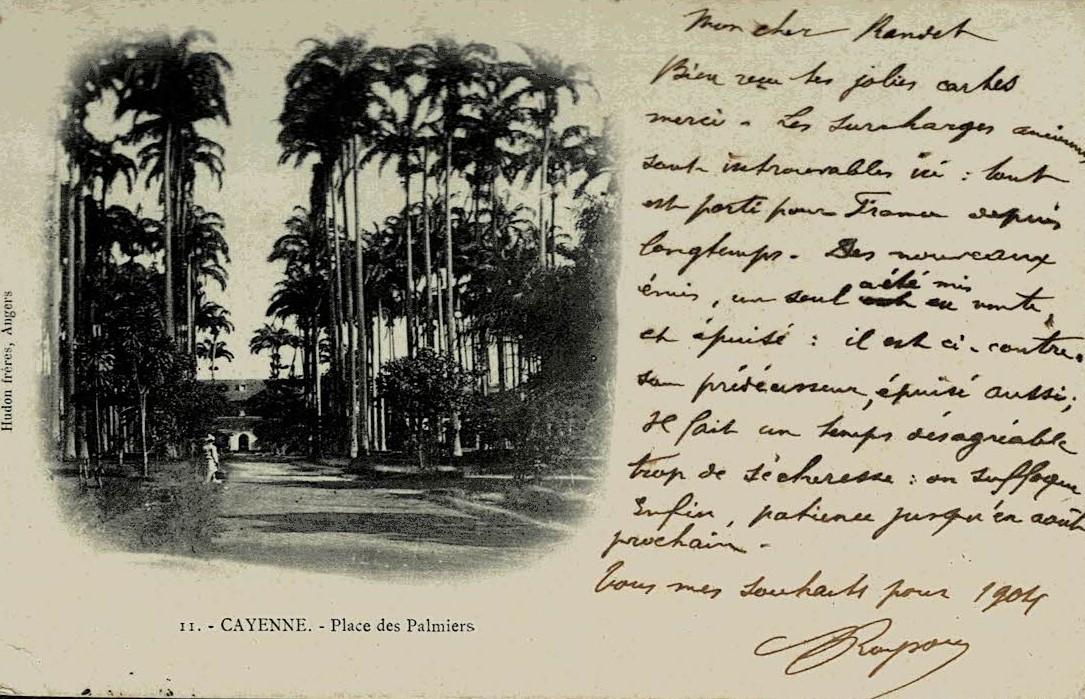 Mon cher Randet
Bien reçu tes jolies cartes
merci - Les surcharges anciennes
sont introuvables ici : tout
est parti pour France depuis
longtemps. Des nouveaux
émis, un seul a été mis en vente
et épuisé : il est ci-contre.
son prédécesseur, épuisé aussi,
Il fait un temps désagréable
trop de sècheresse : on suffoque
Enfin, patience jusqu'en août
prochain -
Tous mes souhaits pour 1904
11. - CAYENNE. - Place des Palmiers
Hudon frères, Angers